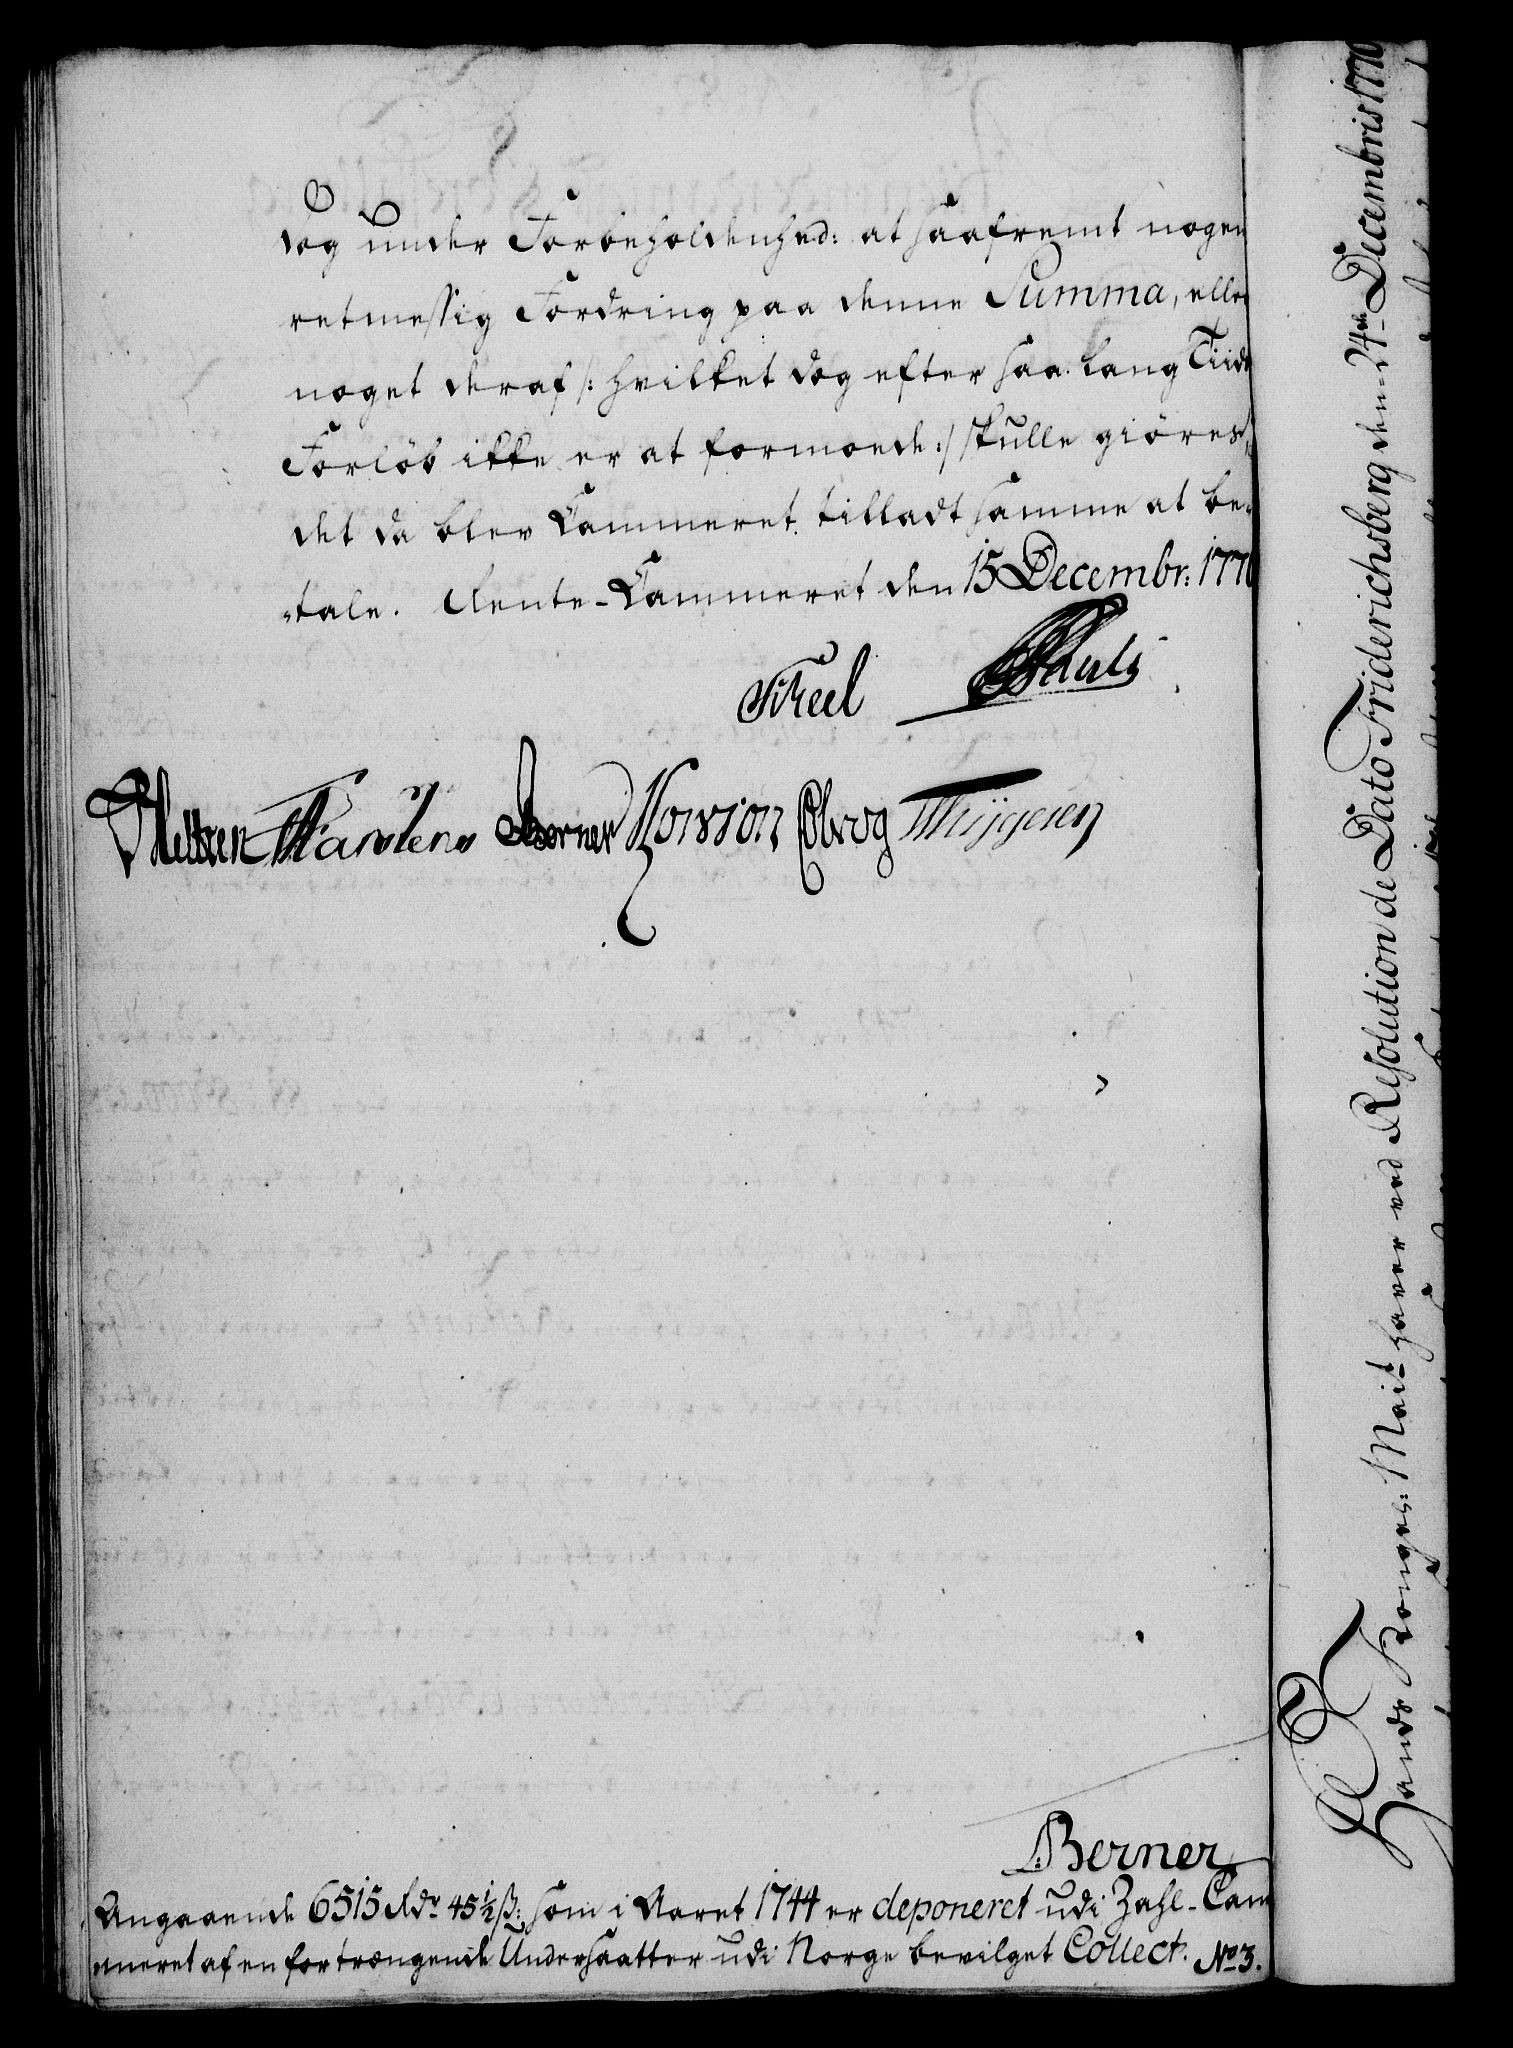 dog under Forbeholdenhed: at saafremt nogen
retmessig Fordring paa denne Summa, eller
noget deraf /: hvilket dog efter saa lang Tiids
Forlöb ikke er at formoede :/ skulle giöres,
det da blev Cammeret tilladt samme at be-
tale. Rente-Cammeret den 15 Decembr: 1770
Scheel
Meltzen Karstens Berner Konsion Obrog Thÿgesen
Berner
Angaaende 6515 Rdr 45½ ß: som i Aaret 1744 er deponeret udi Zahl-Cam
meret af en for trængende Undersaatter udi Norge bevilget Collect. No 3.
Hands Konges: Mait haver ved Resolution de Dato Friderichsberg den 24de Decembris 1770